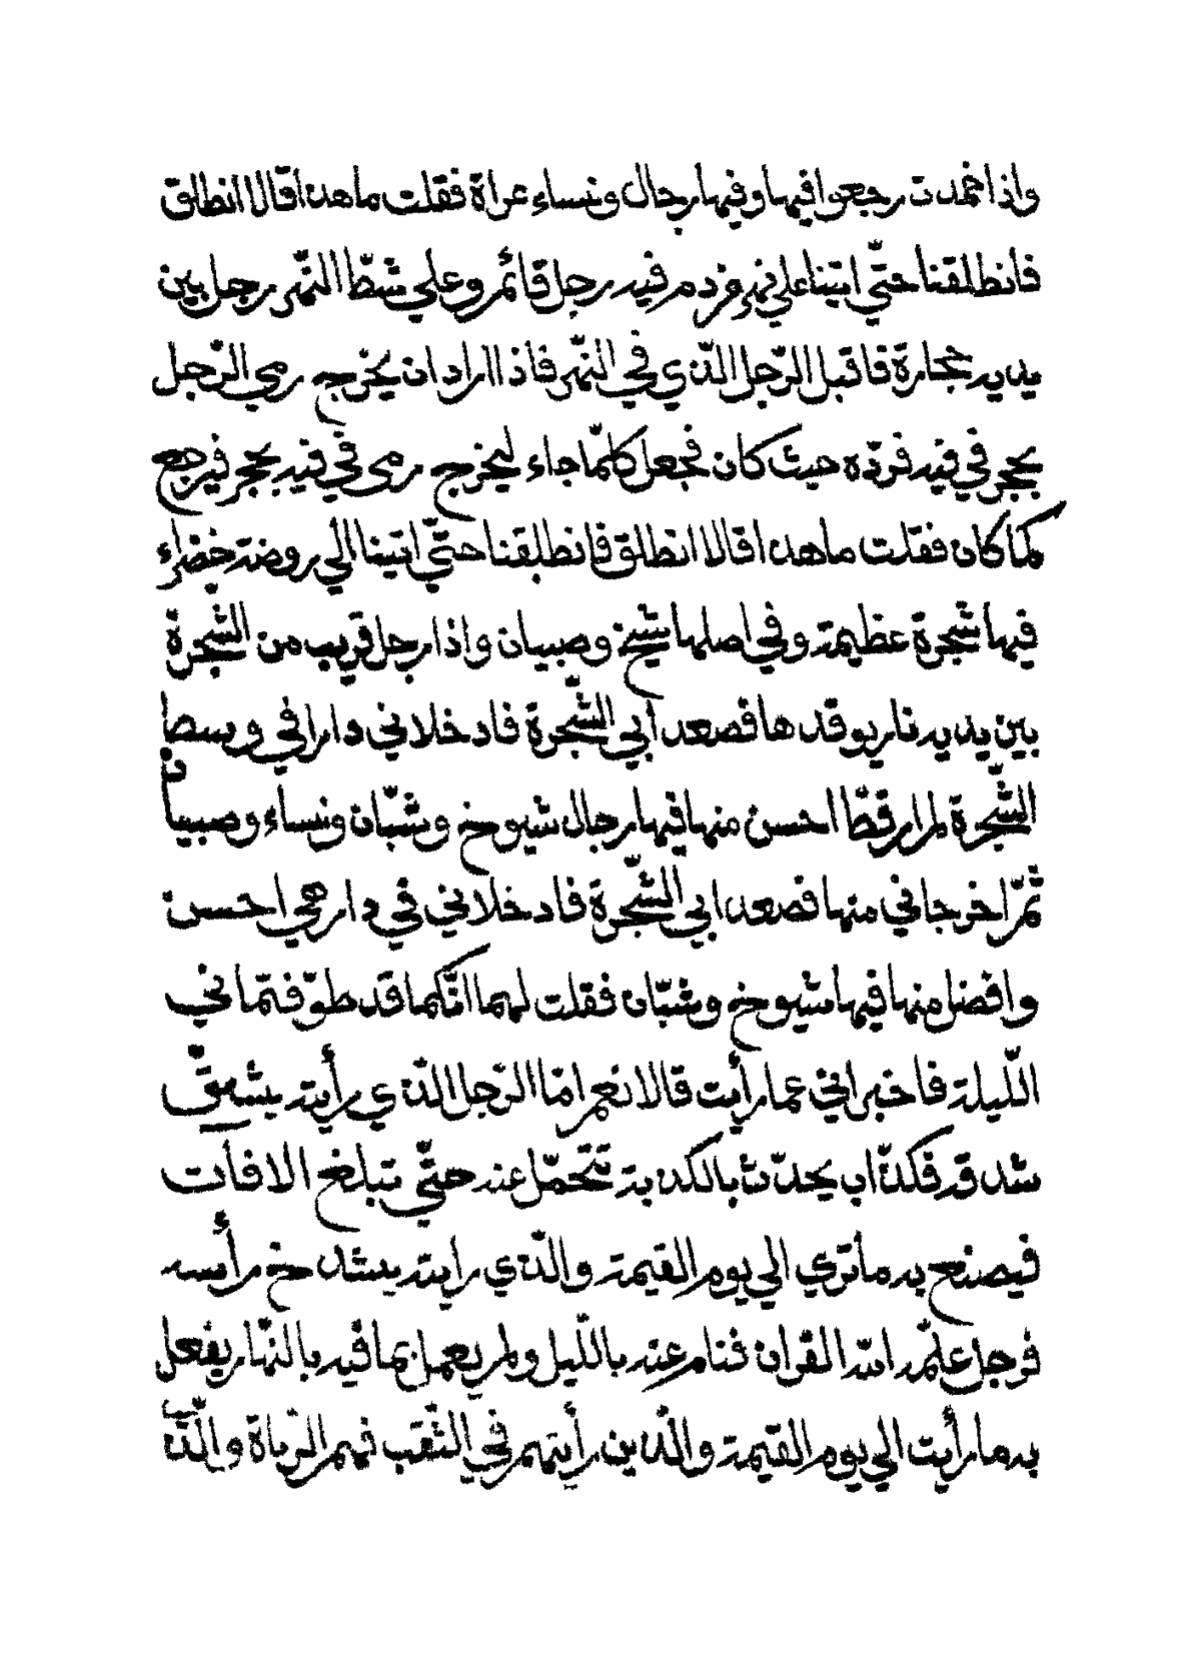 واذا خمدت رجعوا فيها وفيها رجال ونساء عراة فقلت ماهذا قالا انطلق
فانطلقنا حتّي اتينا علي نهر من دم فيه رجل قائم وعلي شطّ النّهر رجل بين
يديه حجارة فاقبل الرّجل الّذي في النّهر فاذا اراد ان يخرج رمي الرّجل
بحجر في فيه فردّه حيث كان فجعل كلّما جاء ليخرج رمي في فيه بحجر فيرجع
كما كان فقلت ماهذا قالا انطلق فانطلقنا حتّي اتينا الي روضة خضراء
فيها شجرة عظيمة وفي اصلها شيخ وصبيان واذا رجل قريب من الشّجرة
بين يديه نار يوقدها فصعدا بي الشّجرة فادخلاني دارا في وسط
الشّجرة لم ار قطّ احسن منها فيها رجال شيوخ وشبّان ونساء وصبيان
ثمّ اخرجاني منها فصعدا بي الشّجرة فادخلاني في دار هي احسن
وافضل منها فيها شيوخ وشبّان فقلت لهما انّكما قد طوّفتماني
اللّيلة فاخبراني عما رأيت قالا نعم امّا الرّجل الّذي رأيته يشقّ
شدقه فكذّاب يحدّث بالكذبة تتحمّل عنه حتّي تبلغ الافأت
فيصنع به مأتري الي يوم القيمة والّذي رايته يشدخ رأسه
فرجل علّمه الله القران فنام عنه باللّيل ولم يعمل بما فيه بالنّهار يفعل
به ما رأيت الي يوم القيمة والّذين رأيتهم في الثّقب فهم الزّناة والّذي